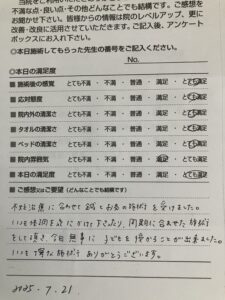 当院をご利用いただきありがとう
な点・良い点・その他どんなことでも結構です。ご感想を
お聞かせ下さい。皆様からの情報は院のレベルアップ、更に
改善・改良に活用させていただきます。ご記入後、アンケート
ボックスにお入れ下さい。
◎本日施術してもらった先生の番号をご記入ください。
No.
◎本日の満足度
■ 施術後の感覚 とても不満 ・ 不満 ・ 普通 ・ 満足 ・ とても満足
■ 応対態度 とても不満 ・ 不満 ・ 普通 ・ 満足 ・ とても満足
■ 院内外の清潔さ とても不満 ・ 不満 ・ 普通 ・ 満足 ・ とても満足
■ タオルの清潔さ とても不満 ・ 不満 ・ 普通 ・ 満足 ・ とても満足
■ ベッドの清潔さ とても不満 ・ 不満 ・ 普通 ・ 満足 ・ とても満足
■ 院内雰囲気 とても不満 ・ 不満 ・ 普通 ・ 満足 ・ とても満足
■ 本日の満足度 とても不満 ・ 不満 ・ 普通 ・ 満足 ・ とても満足
■ ご感想又はご要望（どんなことでも結構です）
不妊治療に合わせて鍼とお灸の施術を受けました。
いつも体調を気にかけて下さったり、周期に合わせた施術
をして頂き、今回無事に子どもを授かることが出来ました。
いつも丁寧な施術ありがとうございます。
2025.7.21